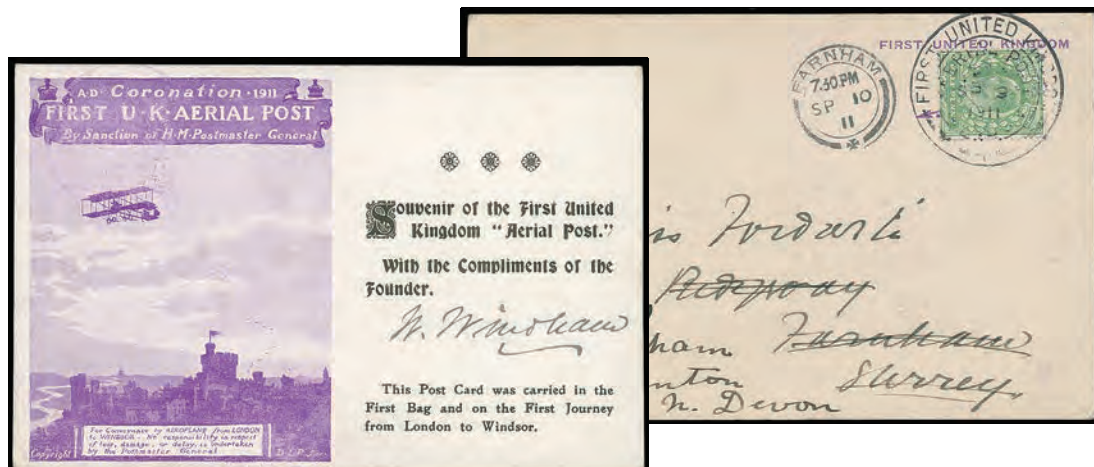 A·D· Coronation · 1911
FIRST U·K·AERIAL POST
By Sanction of H·M·Postmaster General
For Conveyance by AEROPLANE from LONDON
to WINDSOR. No responsibility in respect
of loss, damage, or delay, is undertaken
by the Postmaster General
Copyright
Souvenir of the First United
Kingdom "Aerial Post."
With the Compliments of the
Founder.
W. Windham
This Post Card was carried in the
First Bag and on the First Journey
from London to Windsor.
FIRST UNITED KINGDOM
FARNHAM
7.30 PM
SP 10
11
FIRST UNITED KINGDOM
AERIAL POST
1911
Ridgway
Farnham
Surrey
N. Devon